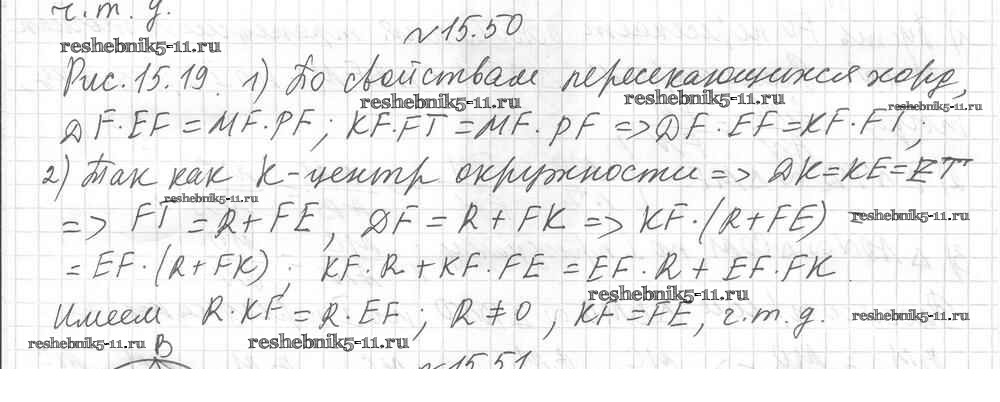 ч.т.д.
№15.50
reshebnik5-11.ru
Рис. 15.19. 1) По свойствам пересекающихся хорд,
reshebnik5-11.ru reshebnik5-11.ru reshebnik5-11.ru
DF·EF = MF·PF; KF·FT = MF·PF => DF·EF = KF·FT;
2) Так как K-центр окружности => DK=KE=ET
reshebnik5-11.ru
=> FT = R + FE, DF = R + FK => KF·(R+FE) =
reshebnik5-11.ru
= EF·(R+FK); KF·R + KF·FE = EF·R + EF·FK
reshebnik5-11.ru
Имеем R·KF = R·EF; R ≠ 0, KF = FE, ч.т.д.
reshebnik5-11.ru
reshebnik5-11.ru B reshebnik5-11.ru
№15.51